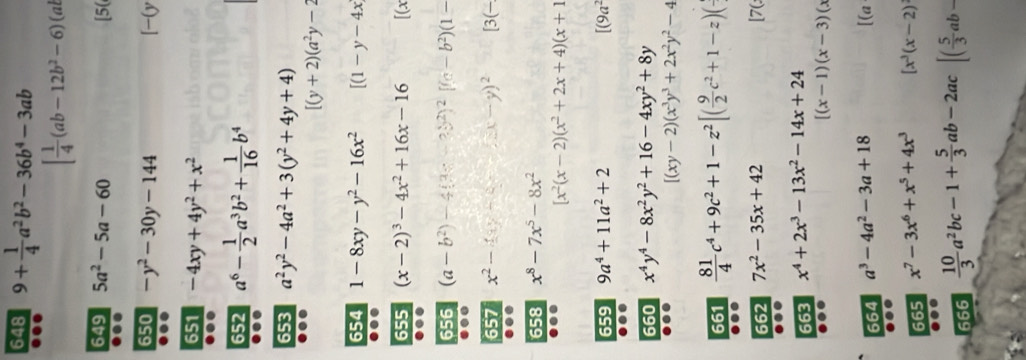 648 9 + 1/4 a²b² − 36b⁴ − 3ab
[1/4 (ab − 12b² − 6)(ab
649 5a² − 5a − 60 [5(
650 −y² − 30y − 144 [−(y
651 −4xy + 4y² + x²
652 a⁶ − 1/2 a³b² + 1/16 b⁴
653 a²y² − 4a² + 3(y² + 4y + 4)
[(y + 2)(a²y − 2
654 1 − 8xy − y² − 16x² [(1 − y − 4x
655 (x − 2)³ − 4x² + 16x − 16 [(x
656 (a − b²) − b²)(1 −
657 x² − − y)² [3(−
658 x⁸ − 7x⁵ − 8x²
[x²(x − 2)(x² + 2x + 4)(x + 1
659 9a⁴ + 11a² + 2 [(9a²
660 x⁴y⁴ − 8x²y² + 16 − 4xy² + 8y
[(xy − 2)(x³y³ + 2x²y² − 4
661 81/4 c⁴ + 9c² + 1 − z² [(9/2 c² + 1 − z)(
662 7x² − 35x + 42 [7(
663 x⁴ + 2x³ − 13x² − 14x + 24
[(x − 1)(x − 3)(x
664 a³ − 4a² − 3a + 18 [(a
665 x⁷ − 3x⁶ + x⁵ + 4x³ [x³(x − 2)²
666 10/3 a²bc − 1 + 5/3 ab − 2ac [(5/3 ab −